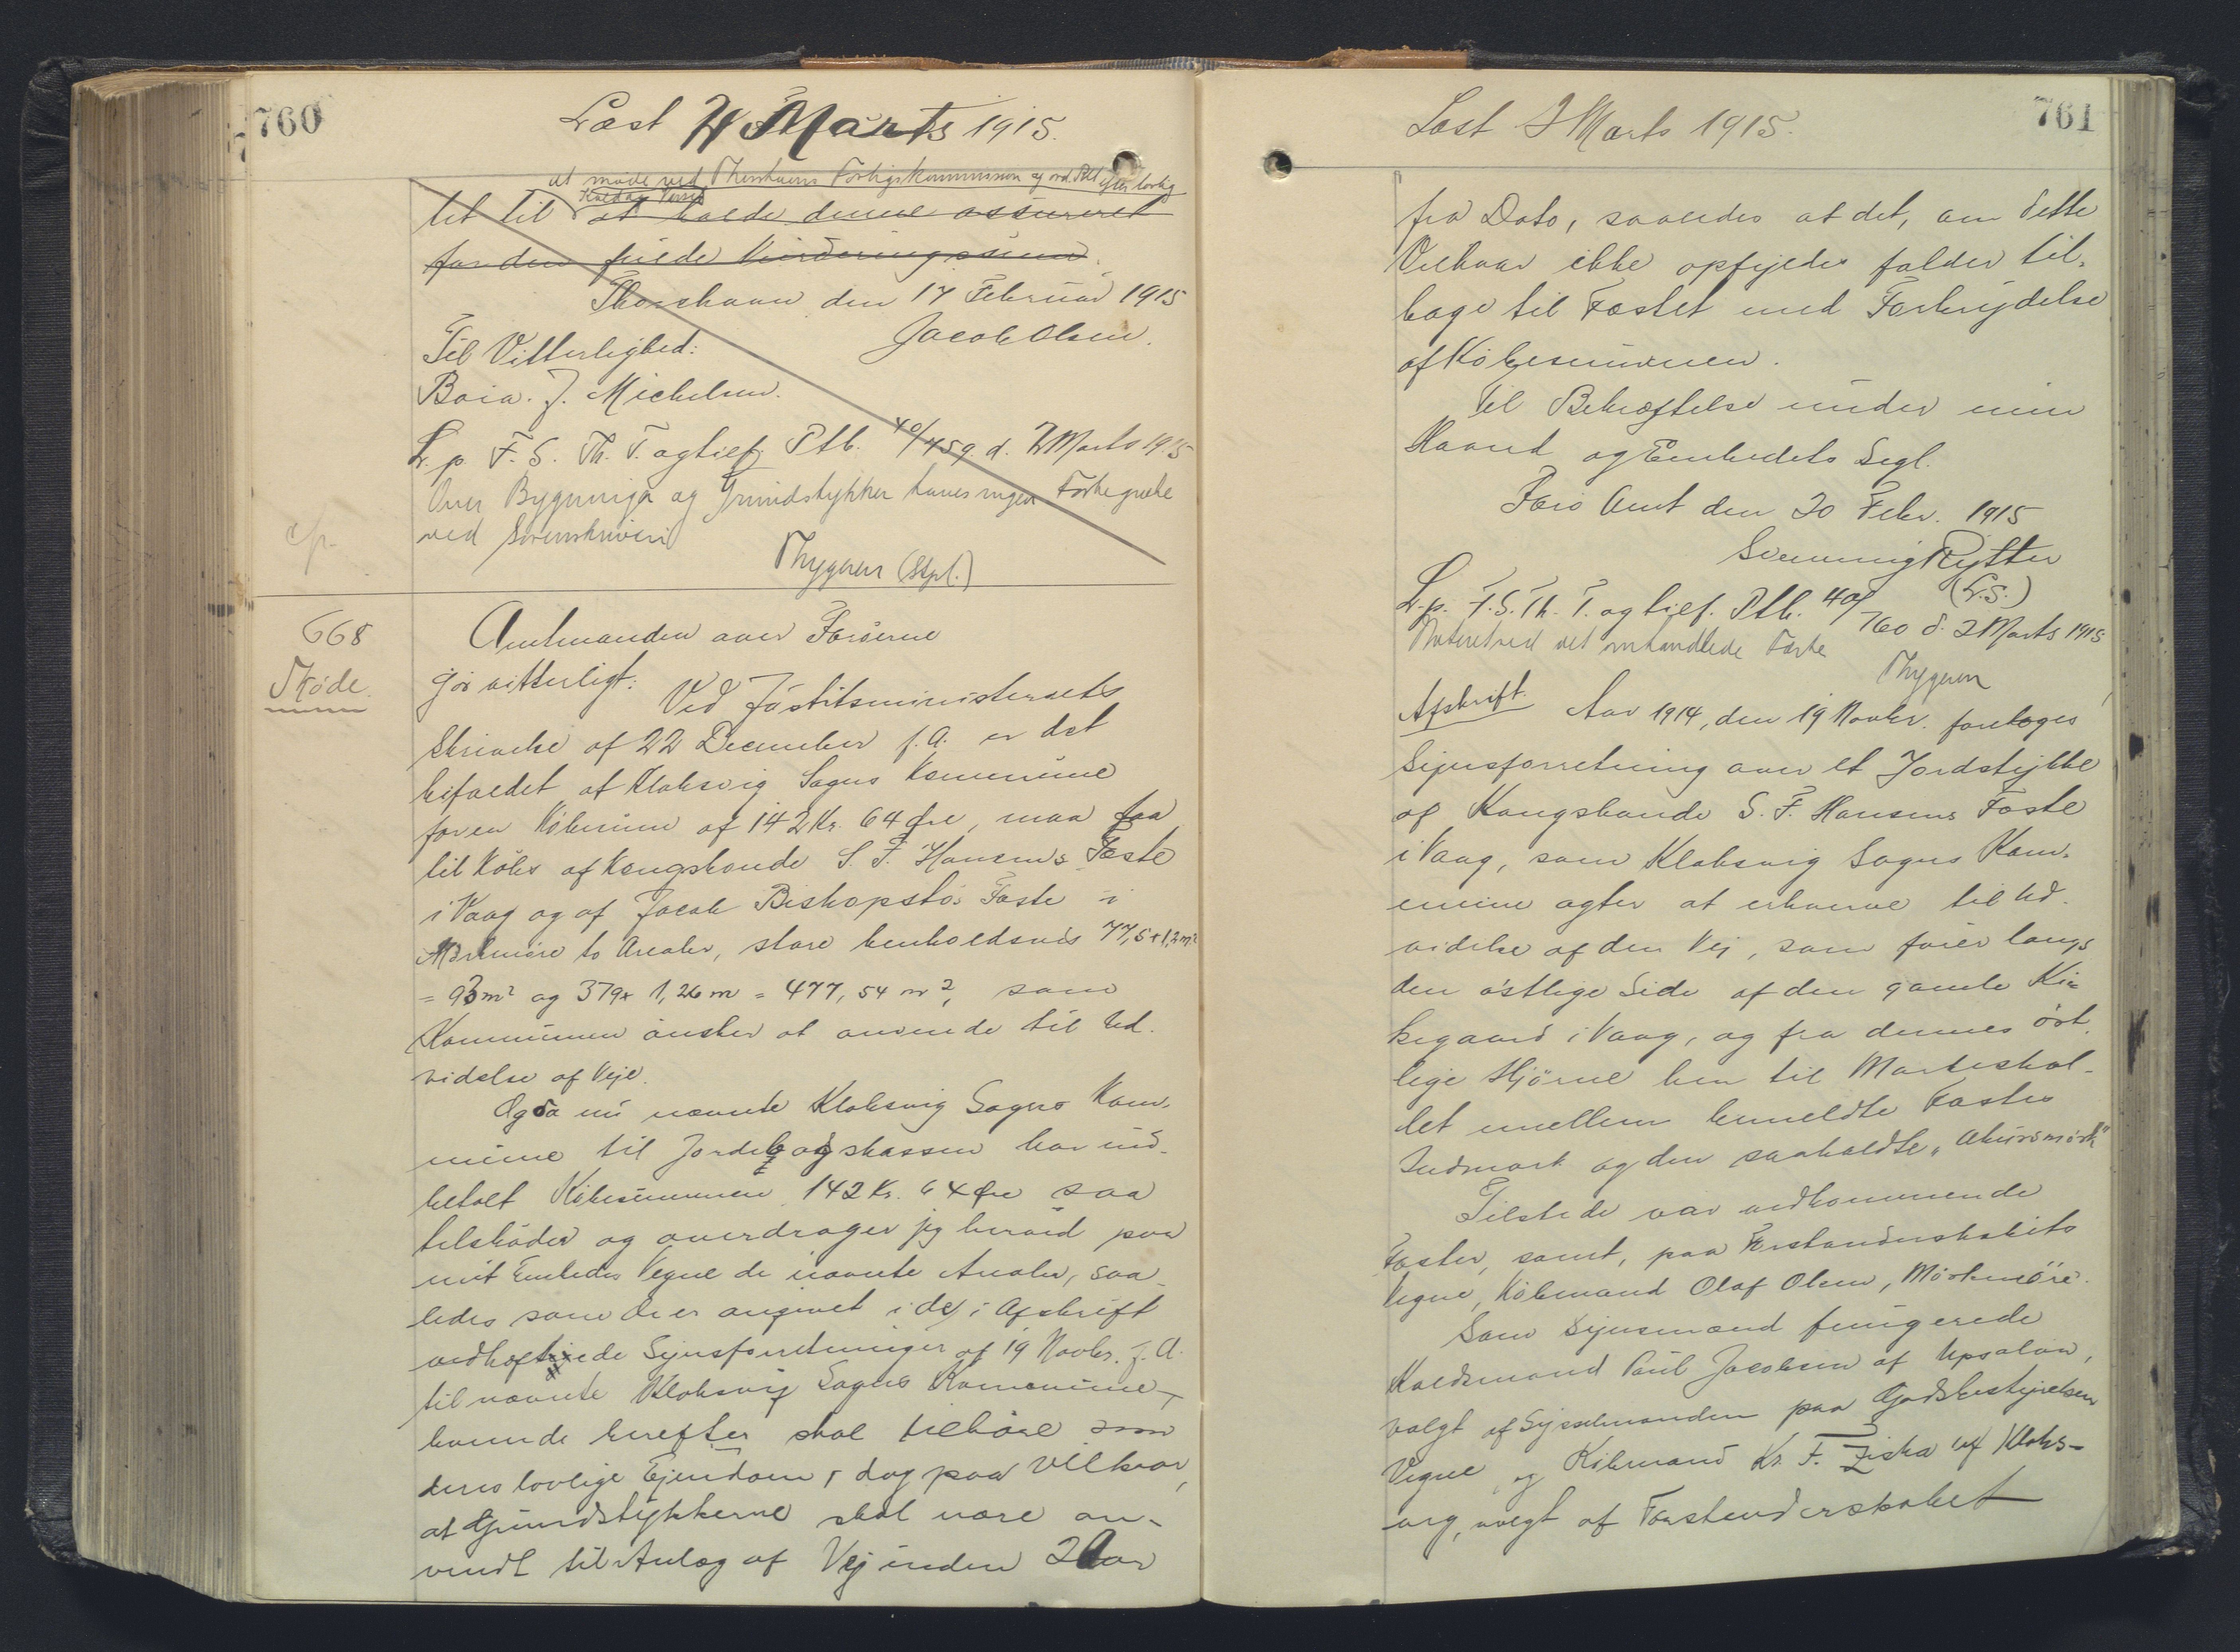 760
Læst 2 Marts 1915.
at møde ved Thorshavns Forligskommission og ord. Ret efter lovlig
Kald og Varsel
tet til at holde denne assureret
for den fulde Vurderingssum.
Thorshavn den 17 Februar 1915
Jacob Olsen.
Til Vitterlighed:
Baia. J. Michelsen.
L. p. F. S. Th. T. og tilf. Ptb. 40/759. d. 2 Marts 1915
Over Bygninger og Grundstykker haves ingen
ved Sorenskriveri
Thygesen (Stpl.)
668
Skøde.
Amtmanden over Færøerne
Gjør vitterligt:
Ved Justitsministeriets
Skrivelse af 22 December f.A. er det
bifaldet at Klaksvig Sogns Kommune
for en Købesum af 142 Kr. 64 Øre, maa faa
til Købs af Kongsbonde S. F. Hansens Fæste
i Vaag og af Jacob Biskopstøs Fæste i
Mørkmøre to Arealer, store henholdsvis 77,5 x 1,2 m²
= 93 m² og 379 x 1,26 m = 477,54 m², som
Kommunen ønsker at anvende til Ud-
videlse af Veje.
Og da nu nævnte Klaksvig Sogns Kom-
mune til Jordebogskassen har ind-
betalt Købesummen 142 Kr. 64 Øre saa
tilskøder og overdrager jeg herved paa
mit Embedes Vegne de nævnte Arealer, saa-
ledes som de er angivet i de i Afskrift
vedhæftede Synsforretninger af 19 Novbr. f. A.
til nævnte Klaksvig Sogns Kommune,
hvem de herefter skal tilhøre som
deres lovlige Ejendom, dog paa Vilkaar,
at Grundstykkerne skal være an-
vendt til Anlæg af Vej inden 2 Aar
761
Læst 2 Marts 1915.
fra Dato, saaledes at det, om dette
Vilkaar ikke opfyldes falder til-
bage til Fæstet med Forbrydelse
af Købesummen.
Til Bekræftelse under min
Haand og Embedets Segl.
Færø Amt den 20 Febr. 1915
Svenning Rytter
(L.S.)
L. p. F. S. Th. T. og tilf. Ptb. 40/760 d. 2 Marts 1915
Noteret ved det omhandlede Fæste
Thygesen
Afskrift.
Aar 1914, den 19 Novbr. foretoges
Synsforretning over et Jordstykke
af Kongsbonde S. F. Hansens Fæste
i Vaag, som Klaksvig Sogns Kom-
mune agter at erhverve til Ud-
videlse af den Vej, som fører langs
den østlige Side af den gamle Kir-
kegaard i Vaag, og fra dennes øst-
lige Hjørne hen til Markeskel-
let mellem bemeldte Fæstes
Indmark og den saakaldte "
Tilstede var vedkommende
Fæster, samt, paa Forstanderskabets
Vegne, Købmand Olaf Olsen, Mörkmöre.
Som Synsmænd fungerede
Kaldsmand Poul Jacobsen af Upsalon,
valgt af Sysselmanden paa Godsbestyrelsens
Vegne og Købmand Kr. F. Ziska af Klaks-
vig, valgt af Forstanderskabet